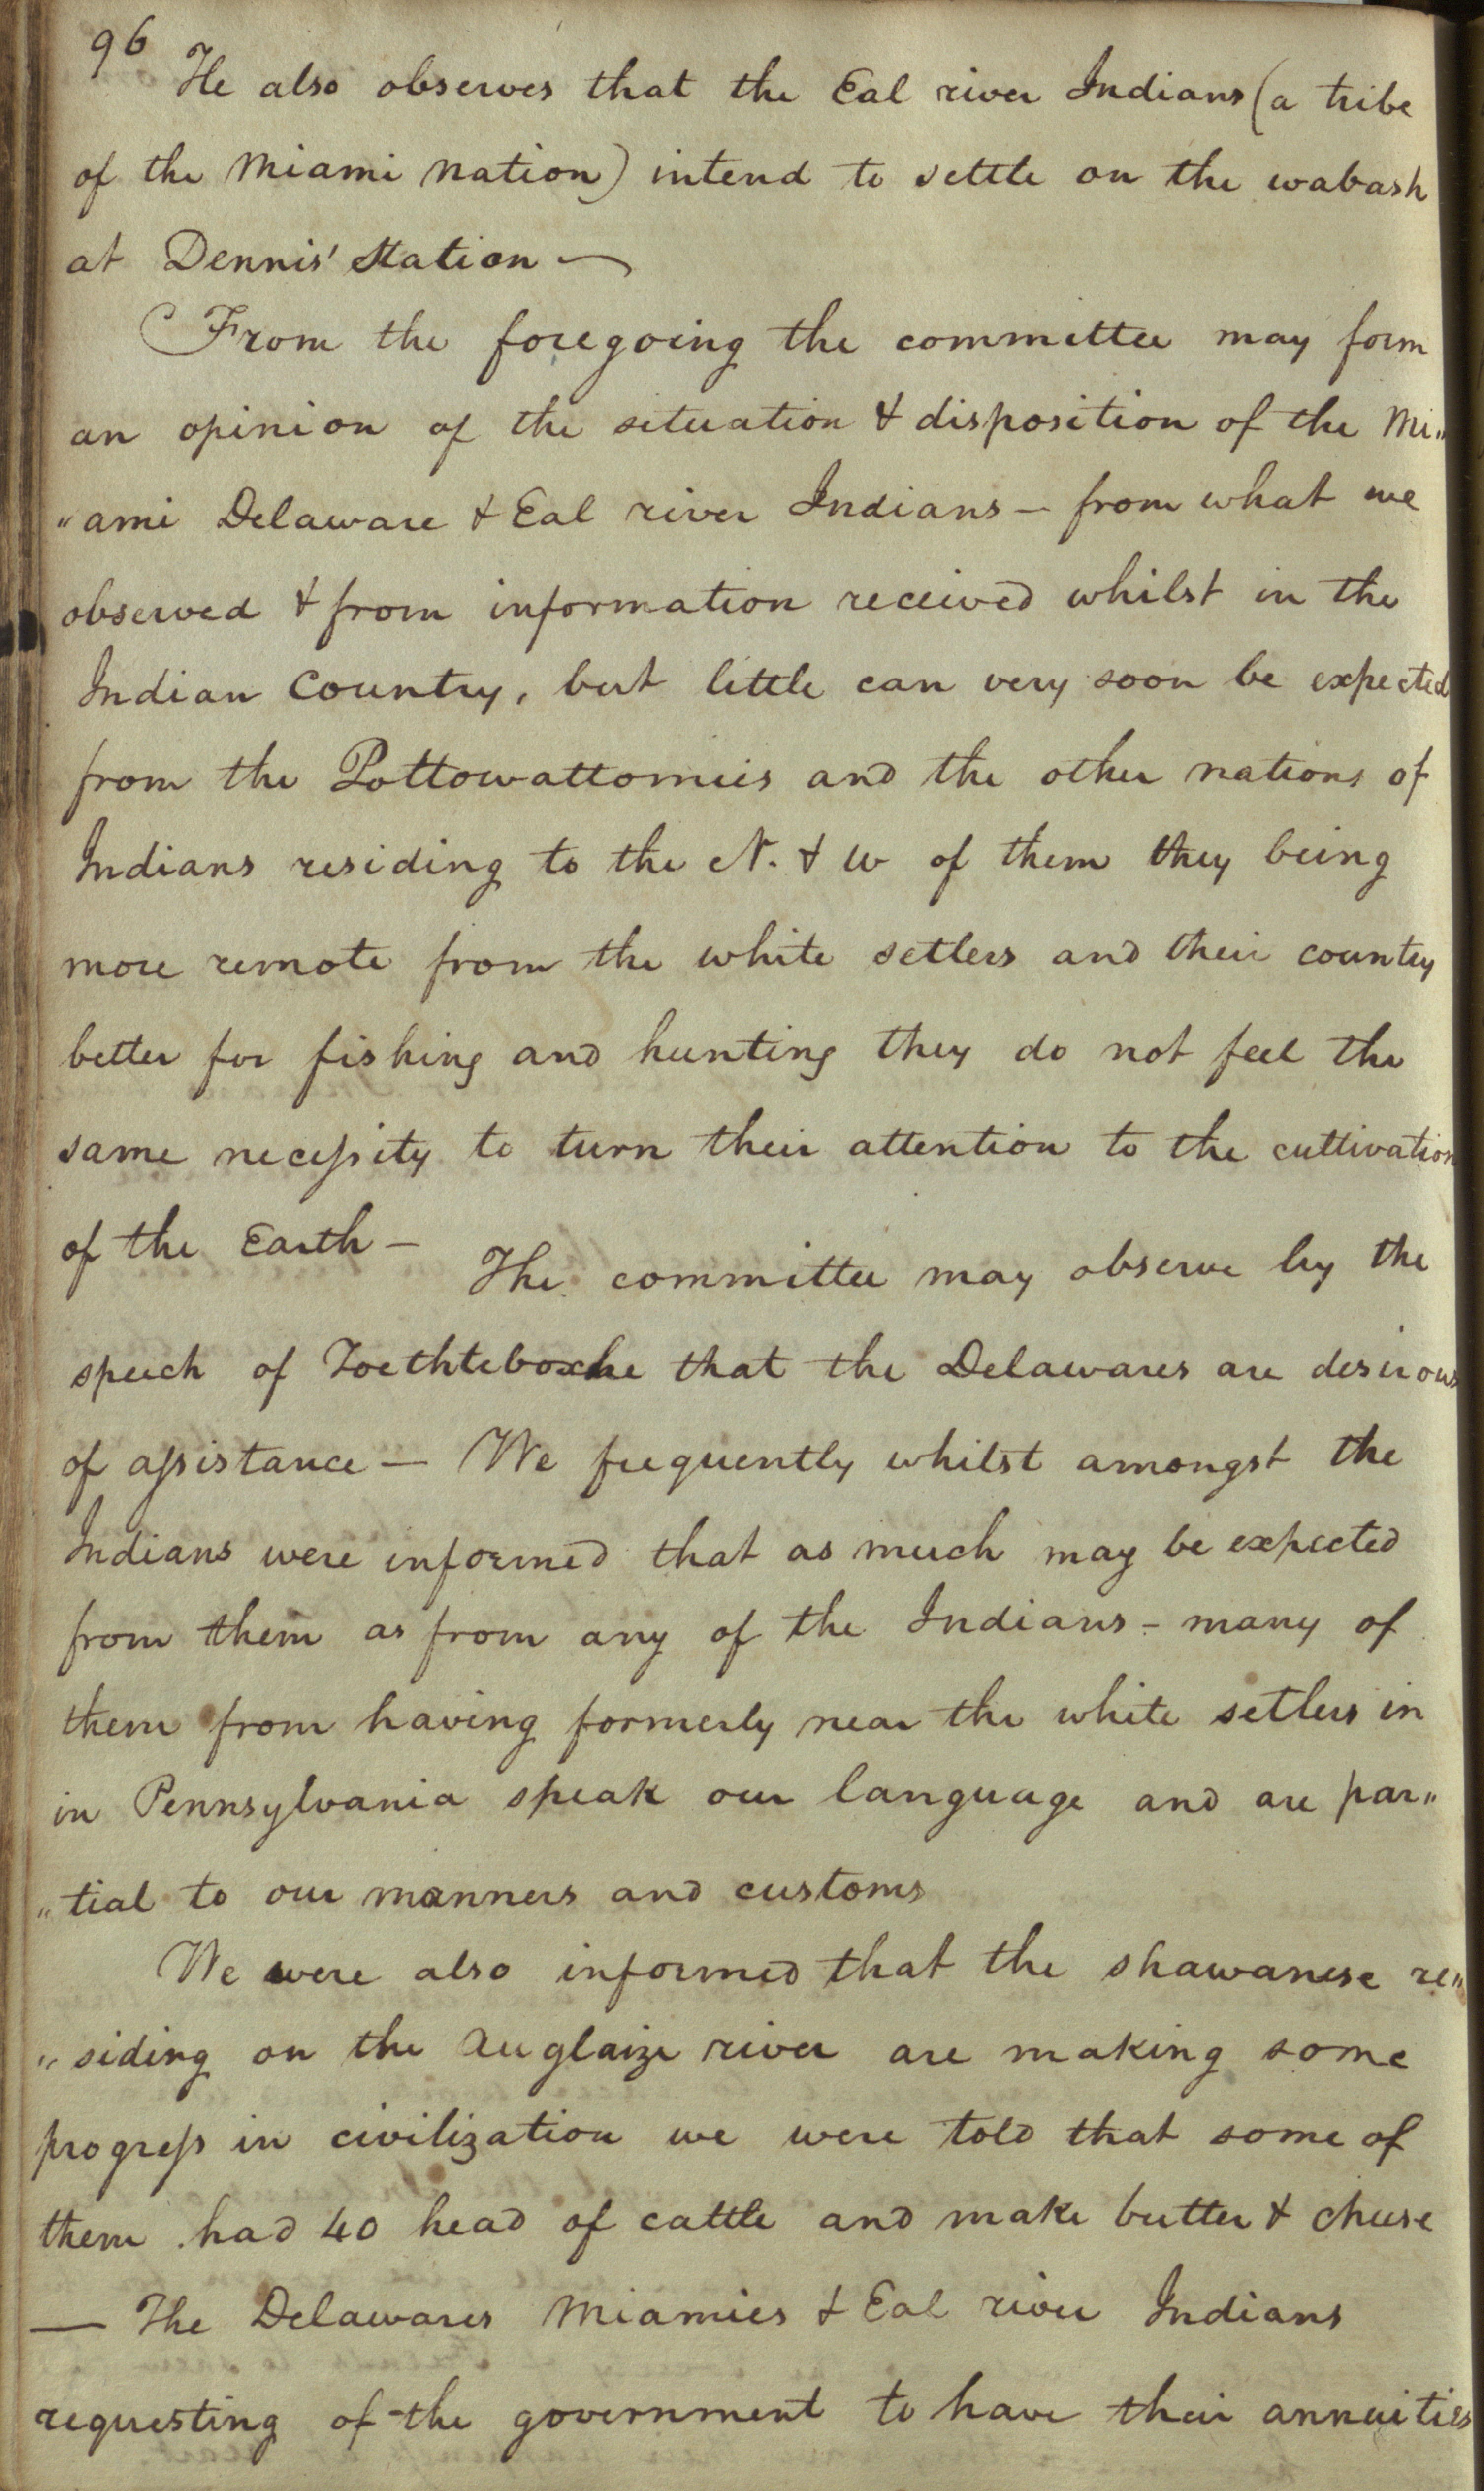 96
He also observes that the Eal river Indians (a tribe
of the Miami Nation) intend to settle on the wabash
at Dennis' Station —
From the foregoing the committee may form
an opinion of the situation & disposition of the Mi„
„ami Delaware & Eal river Indians — from what we
observed & from information received whilst in the
Indian Country, but little can very soon be expected
from the Pottowattomies and the other nations of
Indians residing to the N. & W of them they being
more remote from the white setlers and their country
better for fishing and hunting they do not feel the
same necessity to turn their attention to the cultivation
of the Earth — The committee may observe by the
speech of Toethteboxhe that the Delawares are desirous
of assistance — We frequently whilst amongst the
Indians were informed that as much may be expected
from them as from any of the Indians - many of
them from having formerly near the white setlers in
in Pennsylvania speak our language and are par„
„tial to our manners and customs
We were also informed that the shawanese re„
„siding on the Auglaize river are making some
progress in civilization we were told that some of
them had 40 head of cattle and make butter & cheese
— The Delawares Miamies & Eal river Indians
requesting of the government to have their annuities